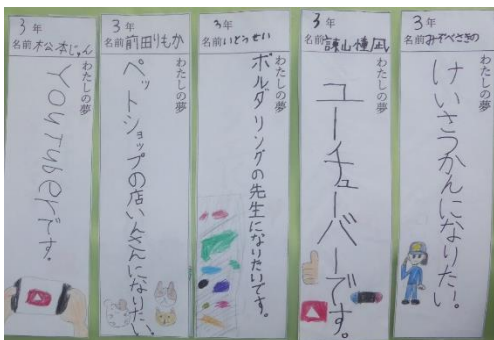 3年
名前 松本じゅん
わたしの夢
YouTuberです。
3年
名前 前田りもか
わたしの夢
ペットショップの店いんさんになりたい。
3年
名前 いとうせい
わたしの夢
ボルダリングの先生になりたいです。
3年
名前
わたしの夢
ユーチューバーです。
3年
名前 みぞべさきの
わたしの夢
けいさつかんになりたい!